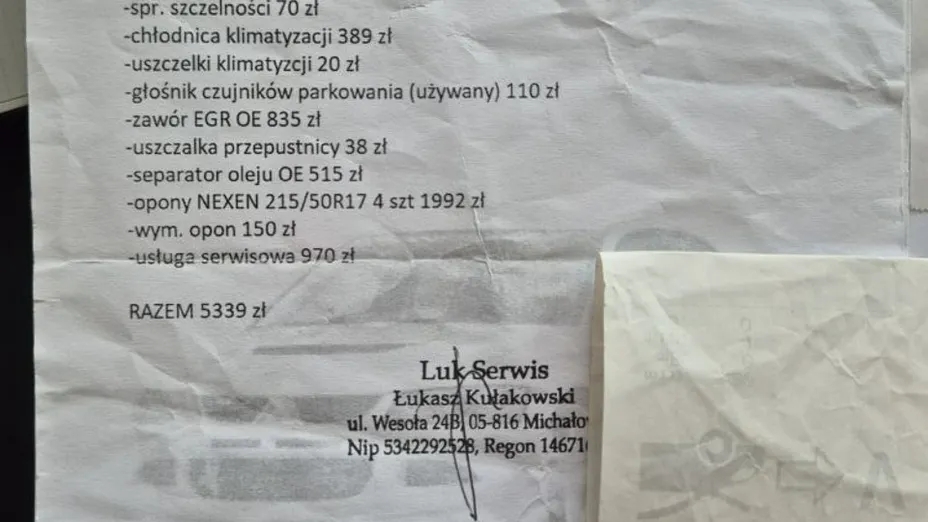 -spr. szczelności 70 zł
-chłodnica klimatyzacji 389 zł
-uszczelki klimatyzcji 20 zł
-głośnik czujników parkowania (używany) 110 zł
-zawór EGR OE 835 zł
-uszczalka przepustnicy 38 zł
-separator oleju OE 515 zł
-opony NEXEN 215/50R17 4 szt 1992 zł
-wym. opon 150 zł
-usługa serwisowa 970 zł
RAZEM 5339 zł
Luk Serwis
Łukasz Kułakowski
ul. Wesoła 24B, 05-816 Michało
Nip 5342292528, Regon 14671